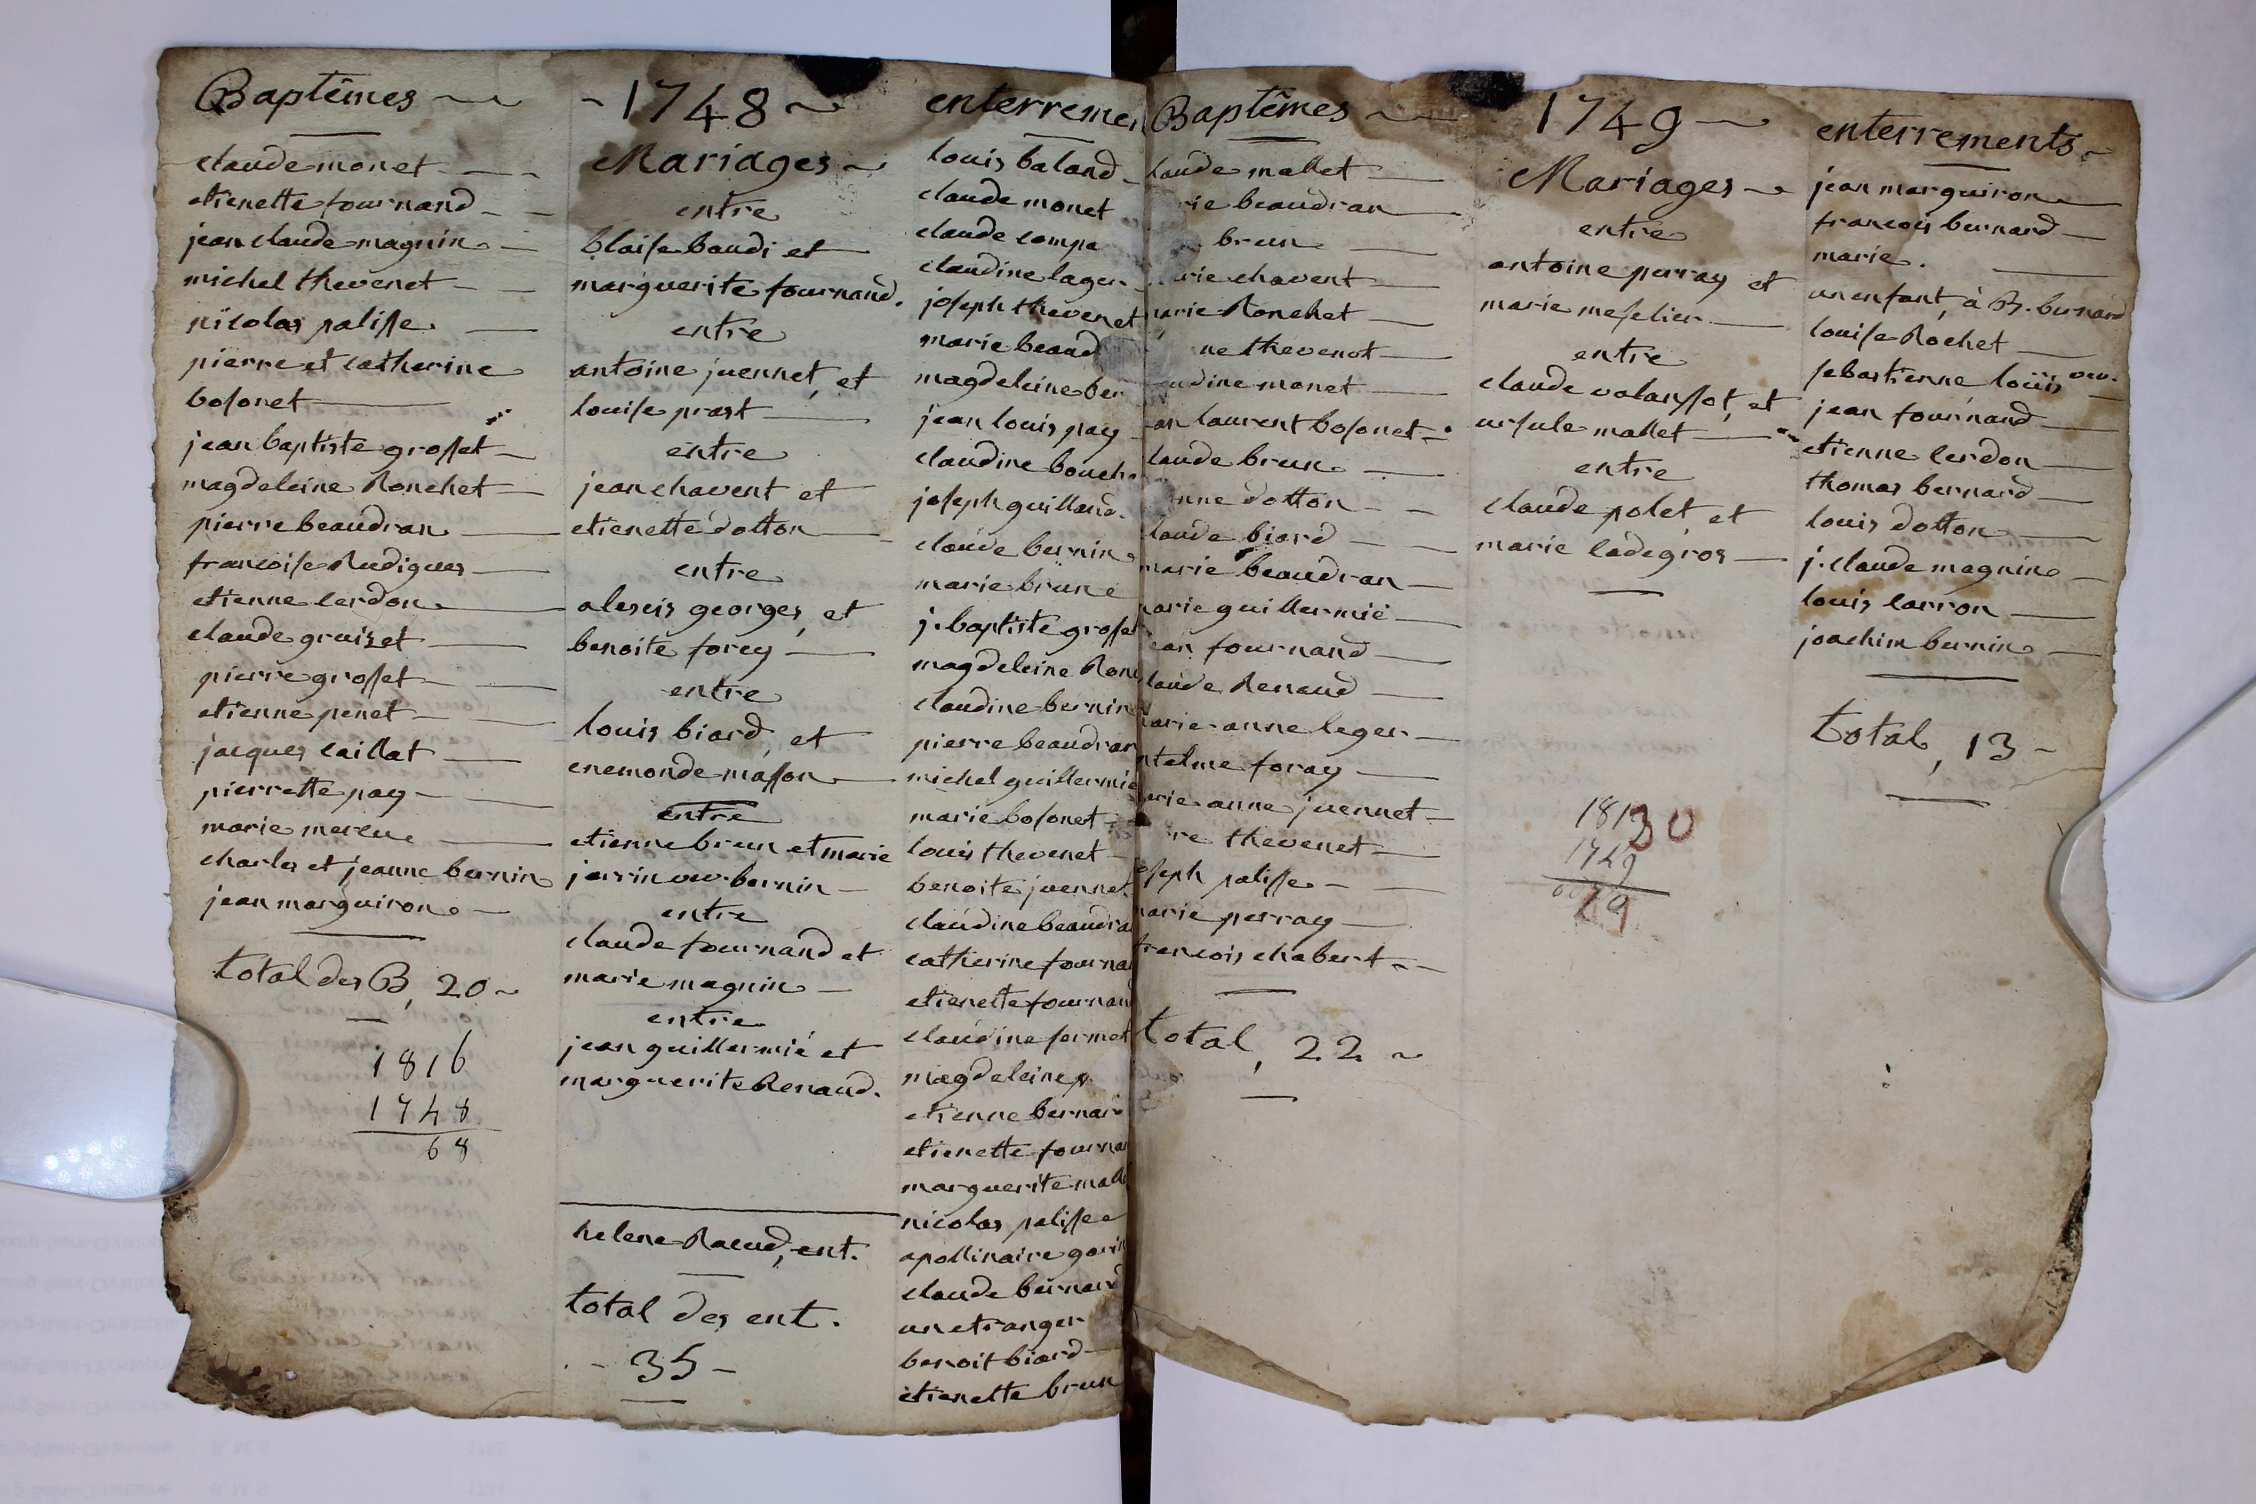 Baptêmes
claude monet
etienette fournand
jean claude magnin
michel thevenet
nicolas palisse
pierre et catherine
bosonet
jean baptiste grosset
magdeleine Ronchet
pierre beaudran
francoise Rudigues
etienne cerdon
claude gruizet
pierre grosset
etienne penet
jacques caillat
pierrette pay
marie
charles et jeanne bernin
jean marguiron
total des B, 20
1816
1748
68
1748
Mariages
entre
blaise baudi et
marguerite fournand.
entre
antoine juennet, et
louise prost
entre
jean chavent et
etienette dotton
entre
alexis georges, et
benoite forey
entre
louis biard, et
enemonde masson
entre
etienne brun et marie
jarrin veuv. bernin
entre
claude fournand et
marie magnin
entre
jean guillermié et
marguerite Renaud.
helene Raeud, ent.
total des ent.
35
enterremen
louis baland
claude monet
claude compa
claudine lager
joseph thevenet
marie beaud
magdeleine ber
jean louis pay
claudine bouch
joseph guilland
claude bernin
marie brune
j. baptiste grosset
magdeleine Ronc
claudine bernin
pierre beaudran
michel guillermié
marie bosonet
louis thevenet
benoite juennet
claudine beaudra
catherine fournan
etienette fournand
claudine fermet
magdeleine p
etienne bernar
etienette fournan
marguerite mall
nicolas palisse
apollinaire gorin
claude bernard
un etranger
benoit biard
etienette brun
Baptêmes
laude mallet
rie beaudran
brun
arie chavent
marie Ronchet
ne thevenot
udine monet
an laurent bosonet
laude brun
nne dotton
laude biard
marie beaudran
marie guillermié
ean fournand
laude Renaud
marie-anne leger
ntelme foray
arie-anne juennet
re thevenet
oseph palisse
marie perray
francois chabert
total, 22
1749
Mariages
entre
antoine perray et
marie meselier
entre
claude valanssot, et
ursule mallet
entre
claude polet, et
marie ladegros
1830
1749
enterrements
jean marguiron
francois bernard
marie.
un enfant, à B. bernard
louise Rochet
sebastienne loüis veu.
jean fournand
etienne cerdon
thomas bernard
louis dotton
j. claude magnin
louis carron
joachim bernin
total, 13